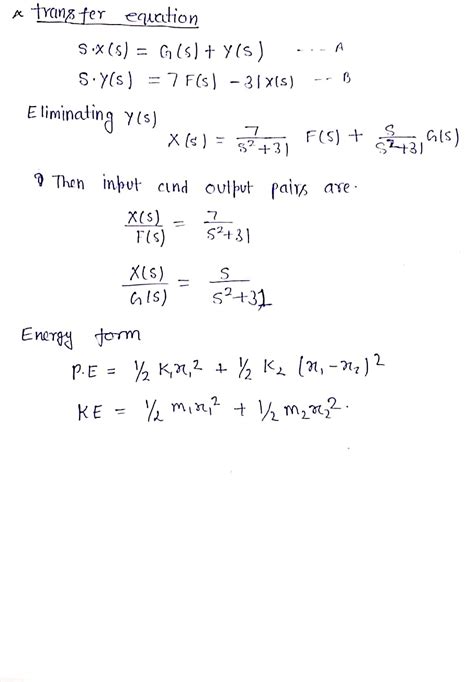 * transfer equation
S·X(s) = G(s) + Y(s) ---- A
S·Y(s) = 7 F(s) - 31 X(s) --- B
Eliminating Y(s)
X(s) = 7/(s²+31) F(s) + s/(s²+31) G(s)
Then input and output pairs are.
X(s)/F(s) = 7/(s²+31)
X(s)/G(s) = s/(s²+31)
Energy form
P.E = 1/2 K₁x₁² + 1/2 K₂ (x₁-x₂)²
KE = 1/2 m₁x₁² + 1/2 m₂x₂².